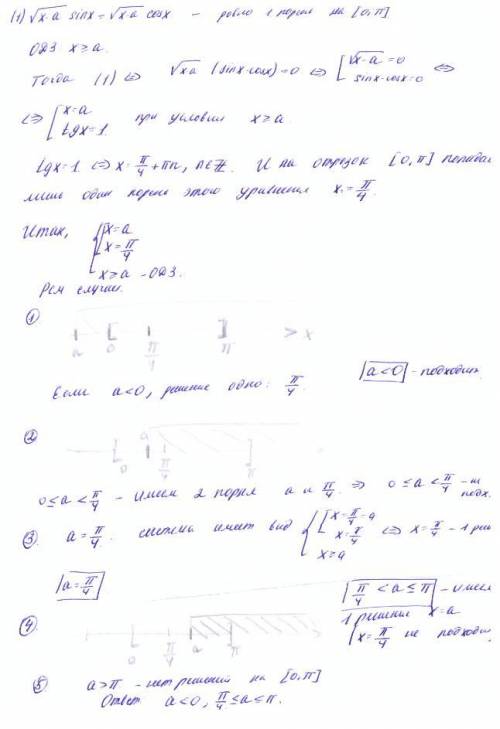 (1) √x-a sinx = √x-a cosx – ровно 1 корень на [0, π]
ОДЗ x ≥ a.
Тогда (1) ⇔ √x-a (sinx-cosx)=0 ⇔ [ √x-a = 0 sinx-cosx=0 ⇔
⇔ [ x=a tgx=1 при условии x ≥ a
tgx=1 ⇔ x = π/4 + πn, n∈Z. И на отрезок [0, π] попадае
лишь один корень этого уравнения x = π/4.
Итак, { [ x=a x=π/4
x ≥ a - ОДЗ.
Рсм случаи.
①
a 0 π/4 π x
Если a<0, решение одно: π/4. a<0 - подходит
②
a
0 π/4 π
0 ≤ a < π/4 – имеем 2 корня a и π/4 ⇒ 0 ≤ a < π/4 - не подх.
③ a = π/4. система имеет вид { [ x=π/4=a x=π/4 x≥a ⇔ x = π/4 - 1 реш
a = π/4
π/4 < a ≤ π - имеем
1 решение x=a
④ x=π/4 не подходи
0 π/4 a π
⑤ a>π - нет решений на [0, π]
Ответ a<0, π/4 ≤ a ≤ π.